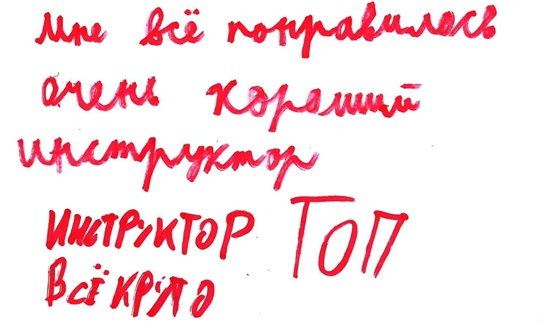 Мне всё понравилось
очень хороший
инструктор
ИНСТРУКТОР ТОП
ВСЁ КРУТО